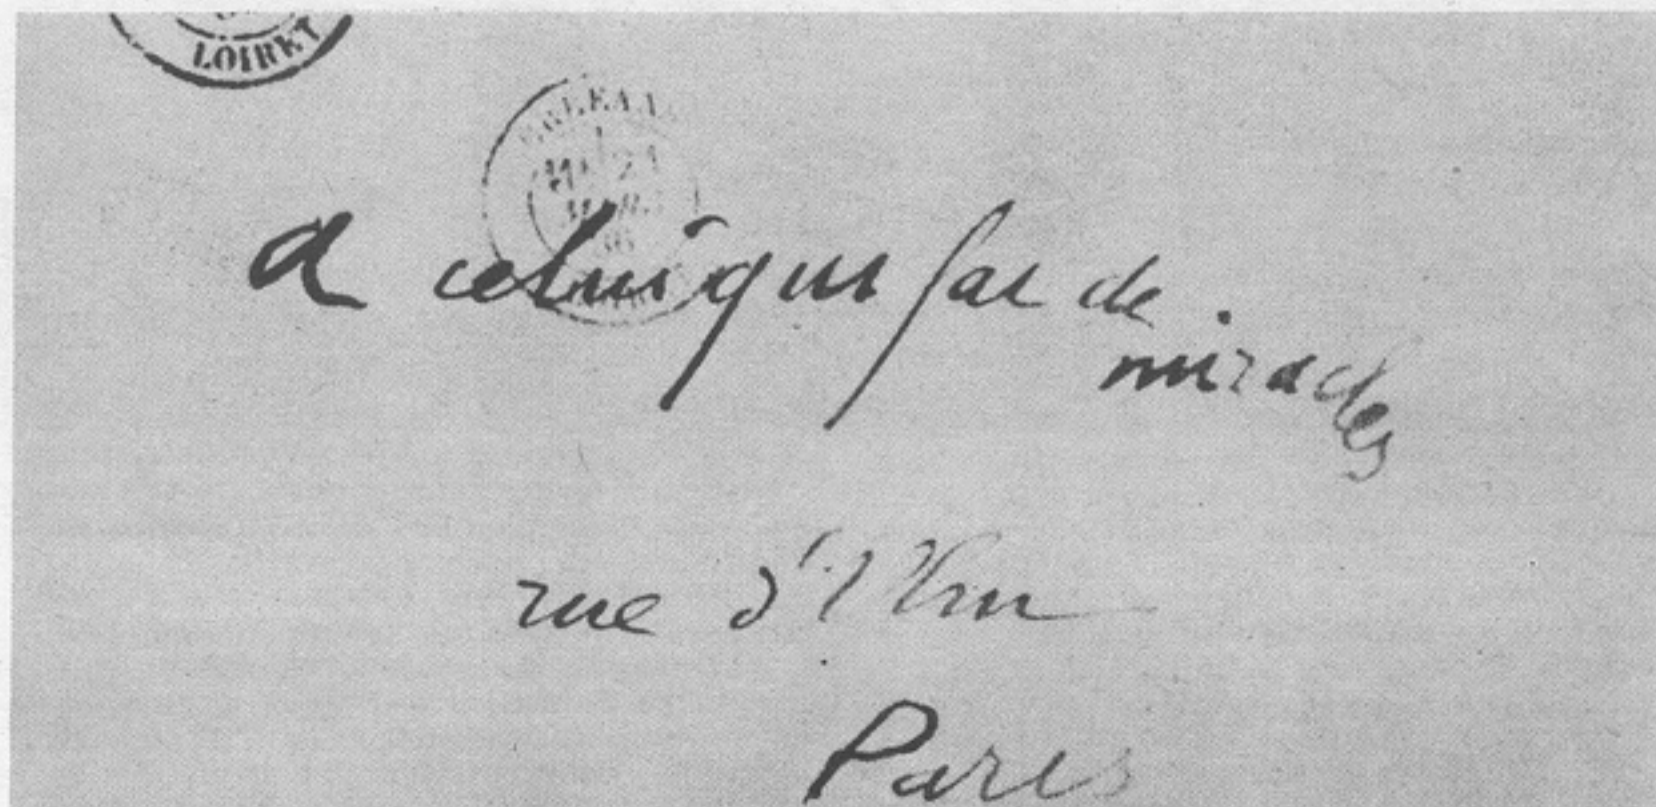 LOIRET
a celui qui fai de
miracles
rue d'Ulm
Paris